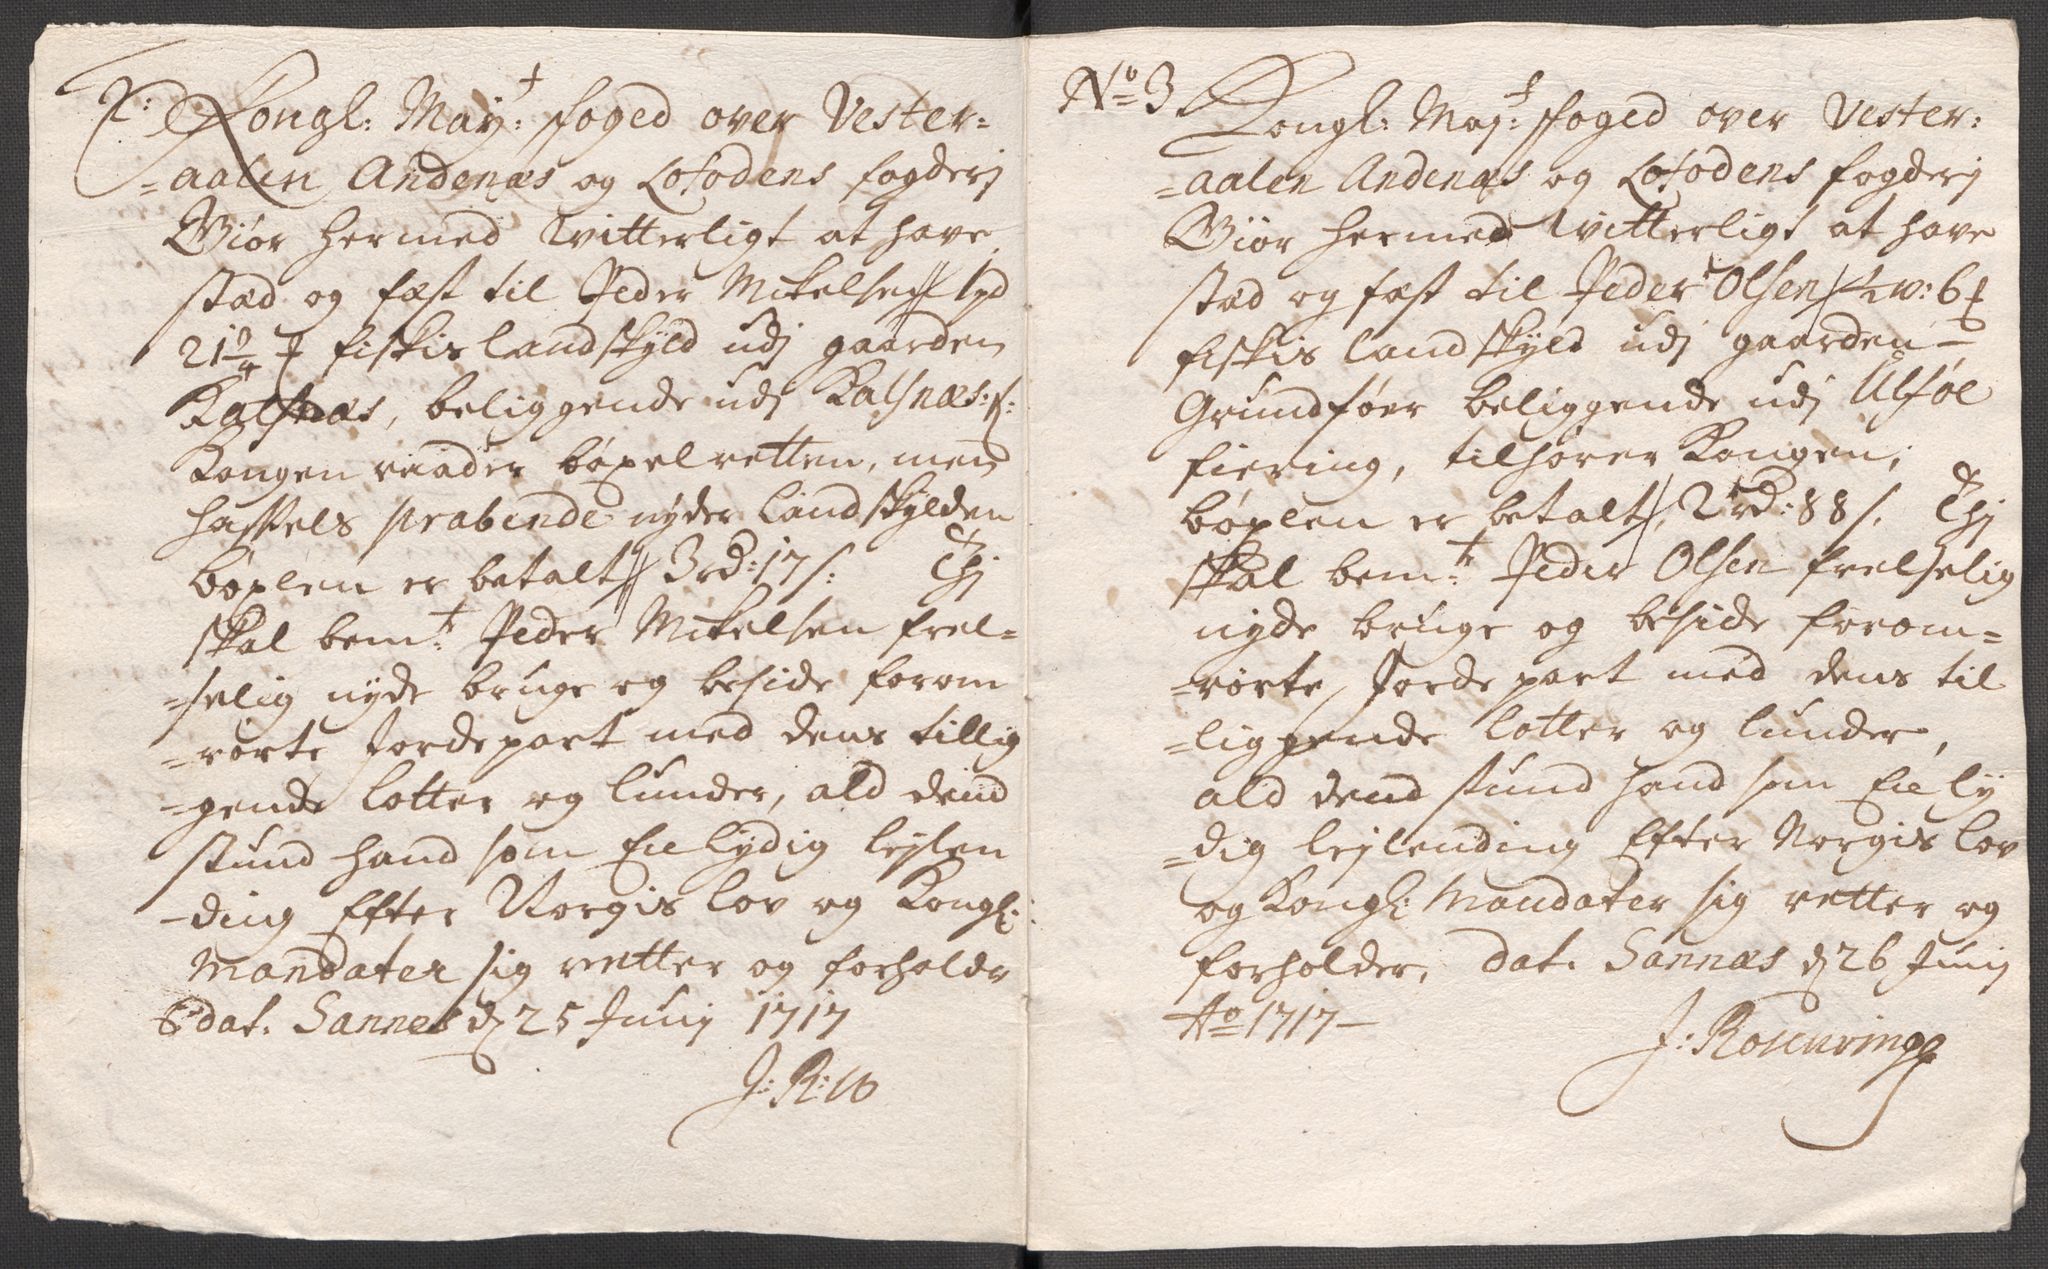 Kongl: May:t foged over Vester=
=aalen Andenæs og Lofodens fogderj
Giør hermed witterligt at have
stæd og fæst til Peder Mikelsen 1 pd
21 ¾ fiskis landskyld udj gaarden
Kalsnæs, beliggende udj Kalsnæs: f:
Kongen raader bøxelretten, men
Hassels præbende nyder landskylden
bøxlen er betalt 3 rd: 17 s: Thj
skal bem:t Peder Mikelsen frel=
=selig nyde bruge og beside forom
=rørte Jordepart med dens tillig
=gende lotter og lunder, ald dend
stund hand som En lydig leylen
=ding Efter Norgis lov og Kongl:
Mandater sig retter og forholder
dat. Sannes d 25 Junij 1717
J: R: W
No 3 Kongl: May:t foged over Vester=
=aalen Andenæs og Lofodens fogderj
Giør hermed witterligt at have
stæd og fæst til Peder Olsen 2 w: 6
fiskis landskyld udj gaarden
Grundføer beliggende udj Ulføe
fiering, tilhører Kongen,
bøxlen er betalt, 2 rd: 88 s. Thj
skal bem:t Peder Olsen frelselig
nyde bruge og beside forom=
=rørte Jorde part med dens til
=liggende lotter og lunder,
ald dend stund hand som En ly
=dig leylending Efter Norgis lov
og Kongl: Mandater sig retter og
forholder, dat. Sannæs d 26 Junij
Ao 1717